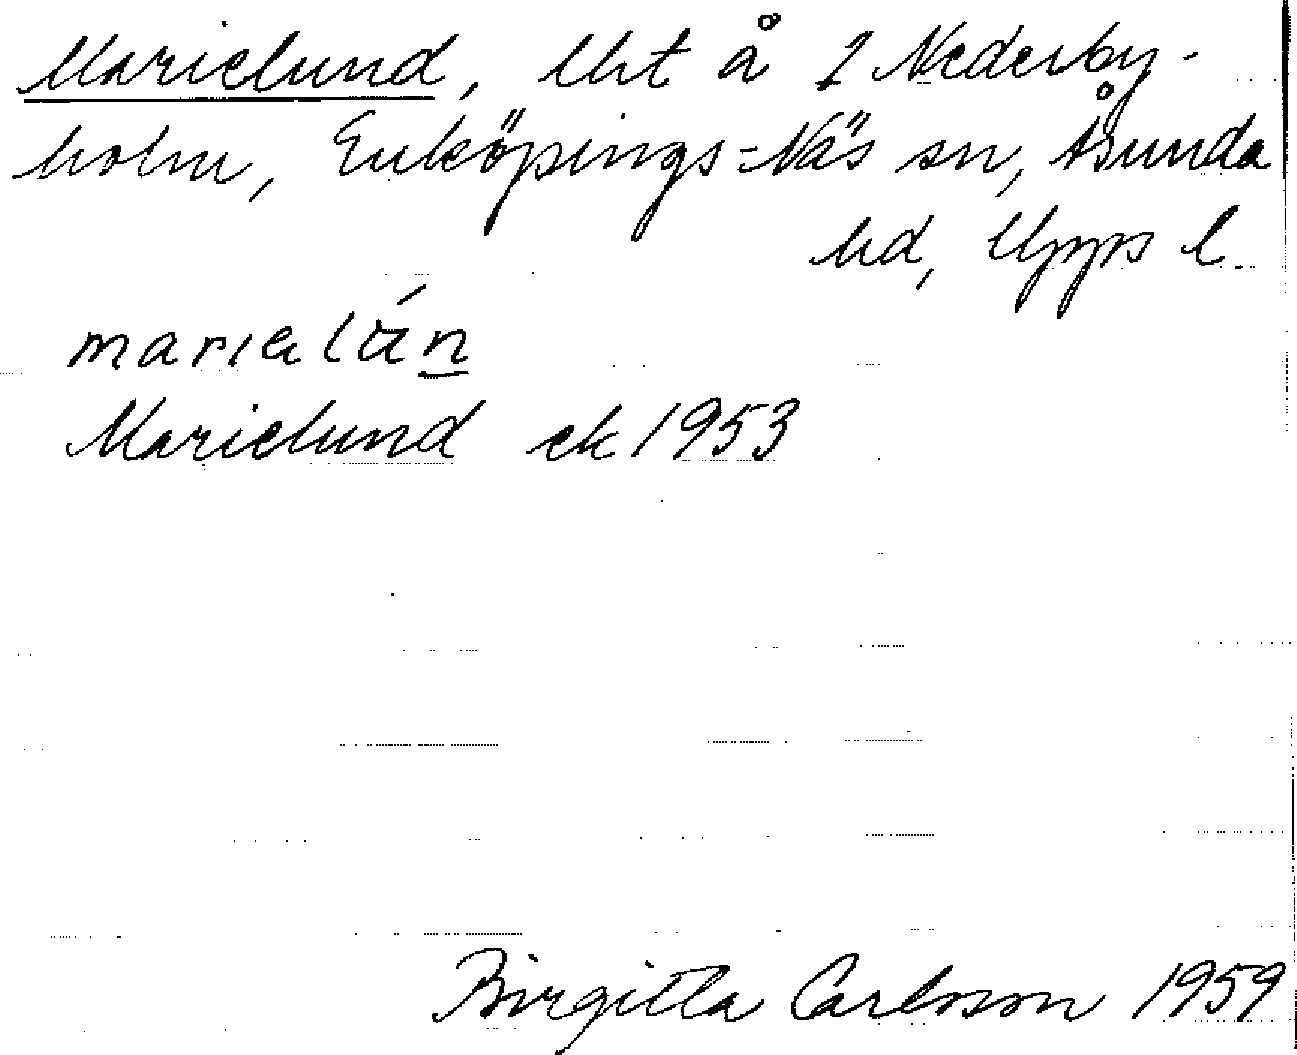 Marielund, lht å 1 Nederby-
holm, Enköpings-Näs sn, Åsunda
hd, Upps l.
marialún
Marielund ek 1953
Birgitta Carlsson 1959